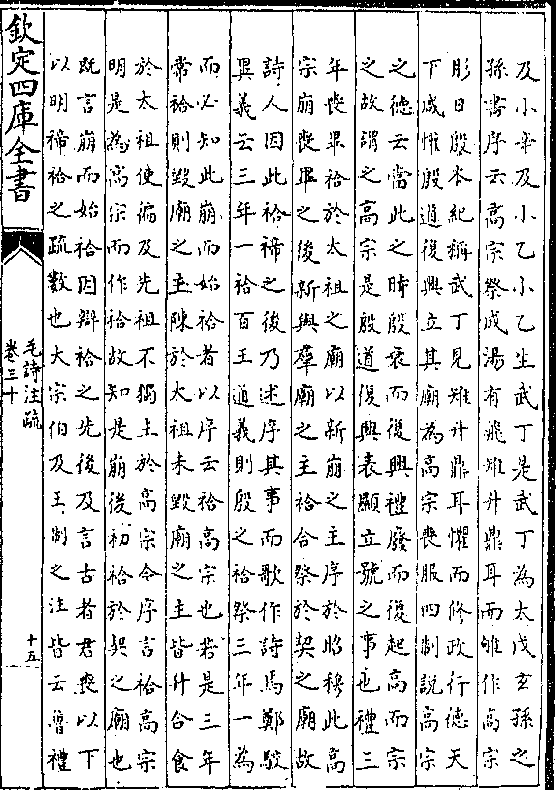 及小辛及小乙小乙生武丁是武丁為太戊玄孫之
孫書序云高宗祭成湯有飛雉升鼎耳而雊作高宗
肜日殷本紀稱武丁見雉升鼎耳懼而修政行德天
下咸懽殷道復興立其廟為高宗喪服四制說高宗
之德云當此之時殷衰而復興禮廢而復起高而宗
之故謂之高宗是殷道復興表顯立號之事也禮三
年喪畢祫於太祖之廟以新崩之主序於昭穆此高
宗崩喪畢之後新與羣廟之主祫合祭於契之廟故
詩人因此祫禘之後乃述序其事而歌作詩焉鄭駮
異義云三年一祫百王通義則殷之祫祭三年一為
而必知此崩而始祫者以序云祫高宗也若是三年
常祫則毀廟之主陳於太祖未毀廟之主皆升合食
於太祖使徧及先祖不獨主於高宗今序言祫高宗
明是為高宗而作祫故知是崩後初祫於契之廟也
既言崩而始祫因辯祫之先後及言古者君喪以下
以明禘祫之疏數也大宗伯及王制之注皆云魯禮
欽定四庫全書
毛詩注疏
卷三十
十五